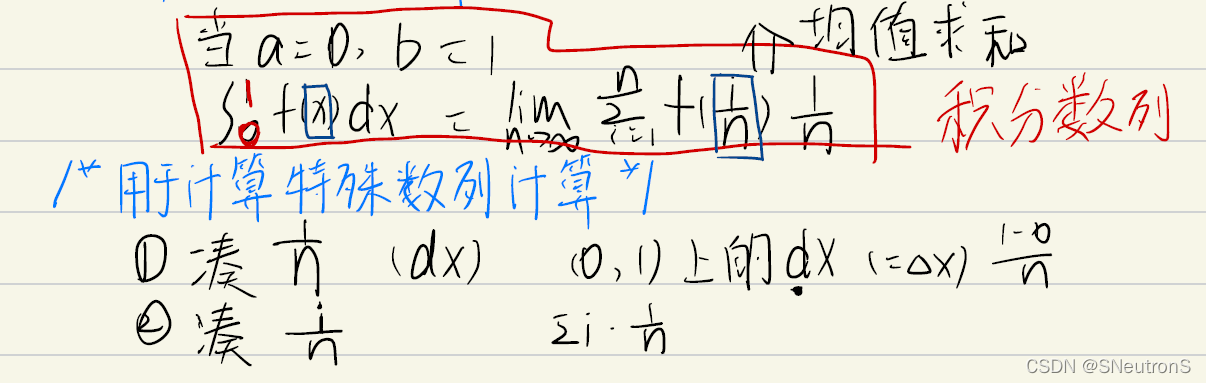 当 a=0, b=1 个均值求和
∫₀¹ f(x)dx = lim n→∞ Σ i=1 n f(i/n) 1/n 积分数列
/* 用于计算特殊数列计算 */
① 凑 1/n (dx) (0,1)上的dx (=△x) 1-0/n
② 凑 i/n Σi·1/n
CSDN @SNeutronS